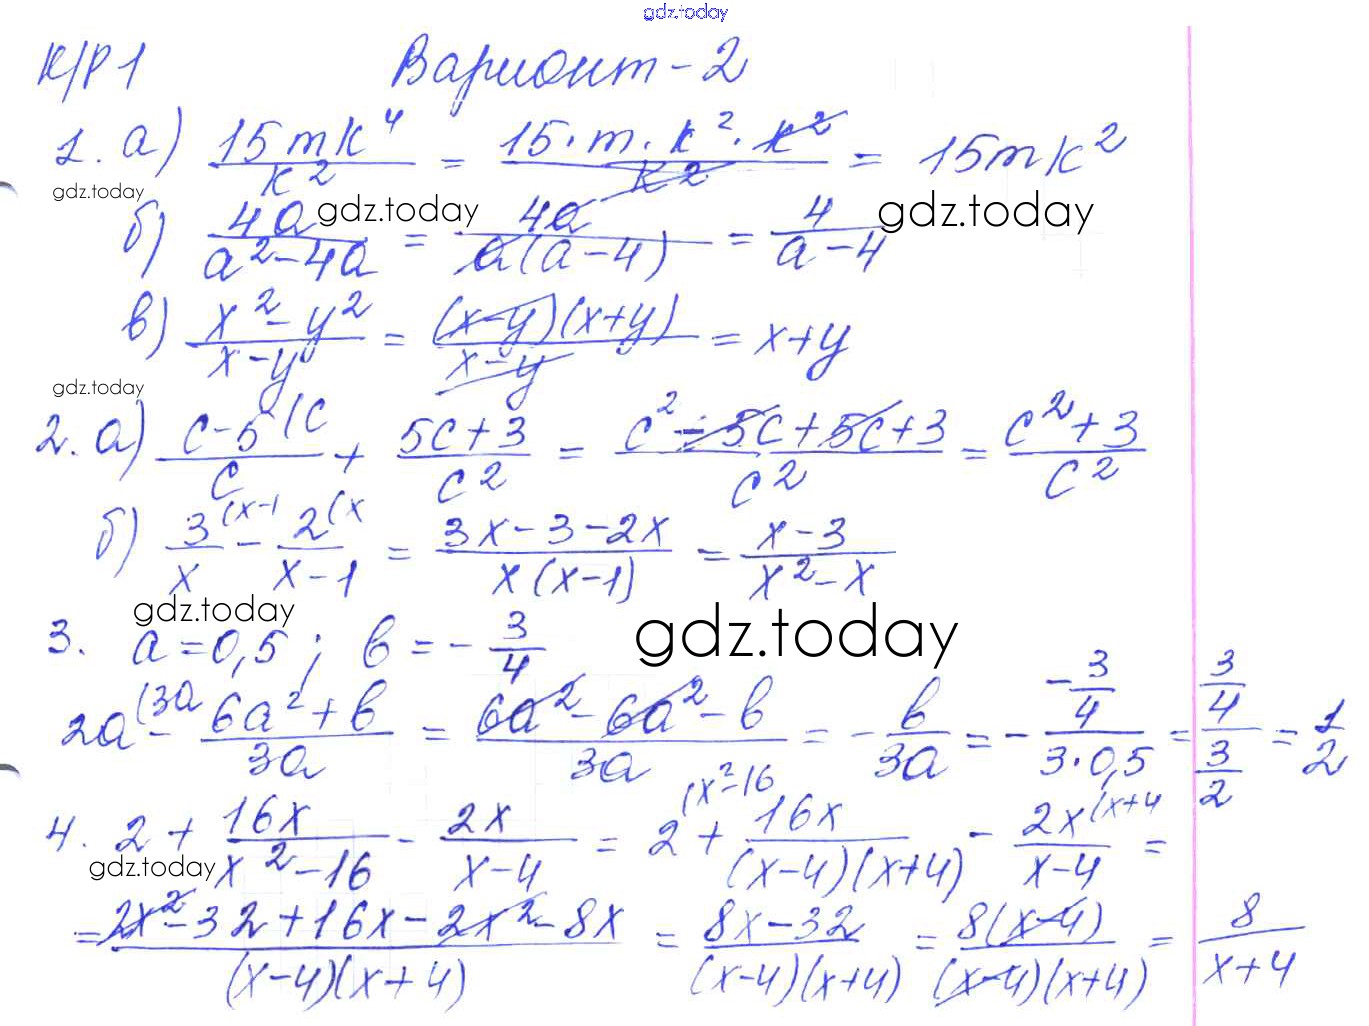 gdz.today
К/Р 1 Вариант - 2
1. а) 15mk⁴/k² = 15·m·k²·k²/k² = 15mk²
gdz.today
б) 4a/(a²-4a) = 4a/(a(a-4)) = 4/(a-4)
gdz.today gdz.today
в) (x²-y²)/(x-y) = (x-y)(x+y)/(x-y) = x+y
gdz.today
2. а) c-5(c/c + (5c+3)/c² = (c²-5c+5c+3)/c² = (c²+3)/c²
б) 3(x-1/x - 2(x/(x-1) = (3x-3-2x)/(x(x-1)) = (x-3)/(x²-x)
gdz.today
3. a=0,5; b=-3/4
gdz.today
2a(3a - (6a²+b)/3a = (6a²-6a²-b)/3a = -b/3a = - (-3/4)/(3·0,5) = (3/4)/(3/2) = 1/2
4. 2 + 16x/(x²-16) - 2x/(x-4) = 2(x²-16 + 16x/((x-4)(x+4)) - 2x(x+4/(x-4) =
gdz.today
= (2x²-32+16x-2x²-8x)/((x-4)(x+4)) = (8x-32)/((x-4)(x+4)) = 8(x-4)/((x-4)(x+4)) = 8/(x+4)